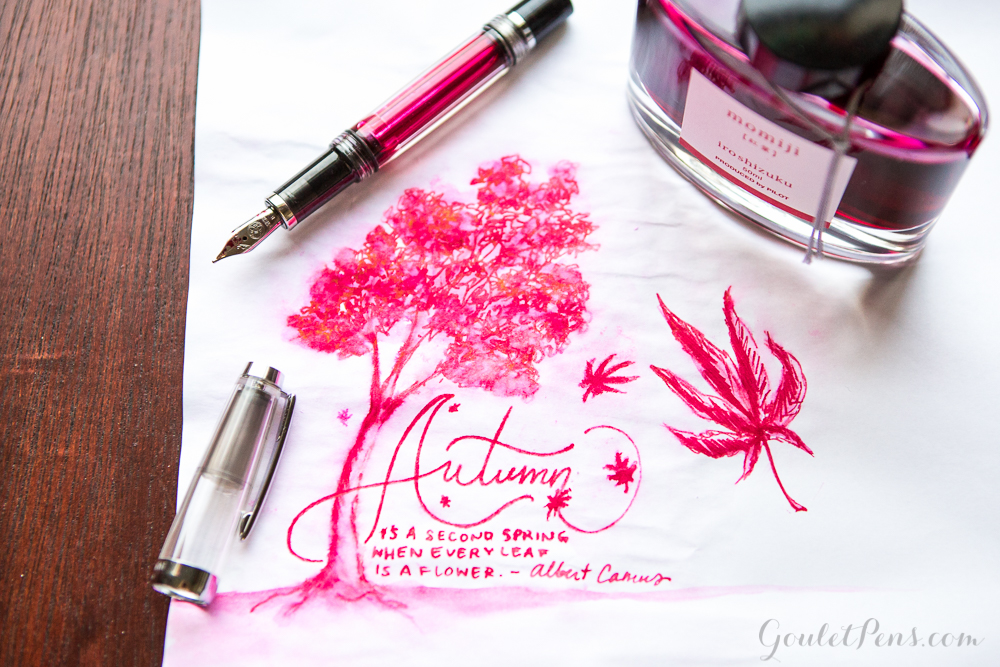 momiji
iroshizuku
50ml
PRODUCED by PILOT
Autumn
IS A SECOND SPRING
WHEN EVERY LEAF
IS A FLOWER. - Albert Camus
GouletPens.com